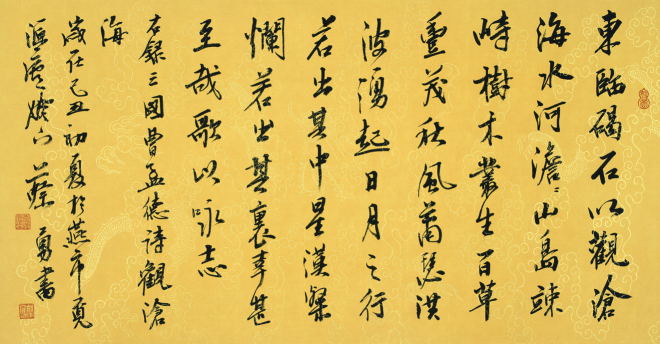 東臨碣石以觀滄
海水河澹〻山島竦
峙樹木叢生百草
豐茂秋風蕭瑟洪
波湧起日月之行
若出其中星漢粲
爛若出其裏幸甚
至哉歌以咏志
右錄三國曹孟德詩觀滄
海
歲在己丑初夏於燕市
燈下蔡勇書